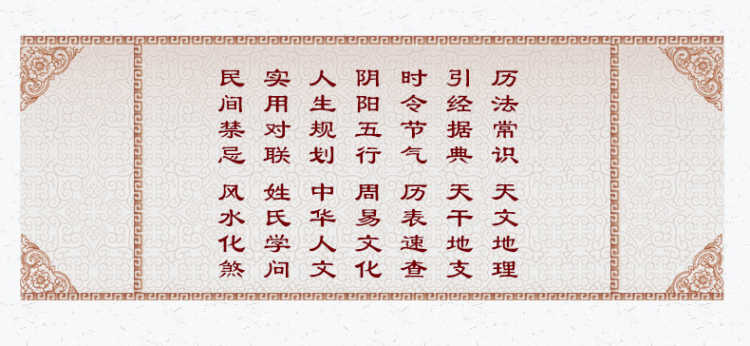 历法常识 天文地理
引经据典 天干地支
时令节气 历表速查
阴阳五行 周易文化
人生规划 中华人文
实用对联 姓氏学问
民间禁忌 风水化煞